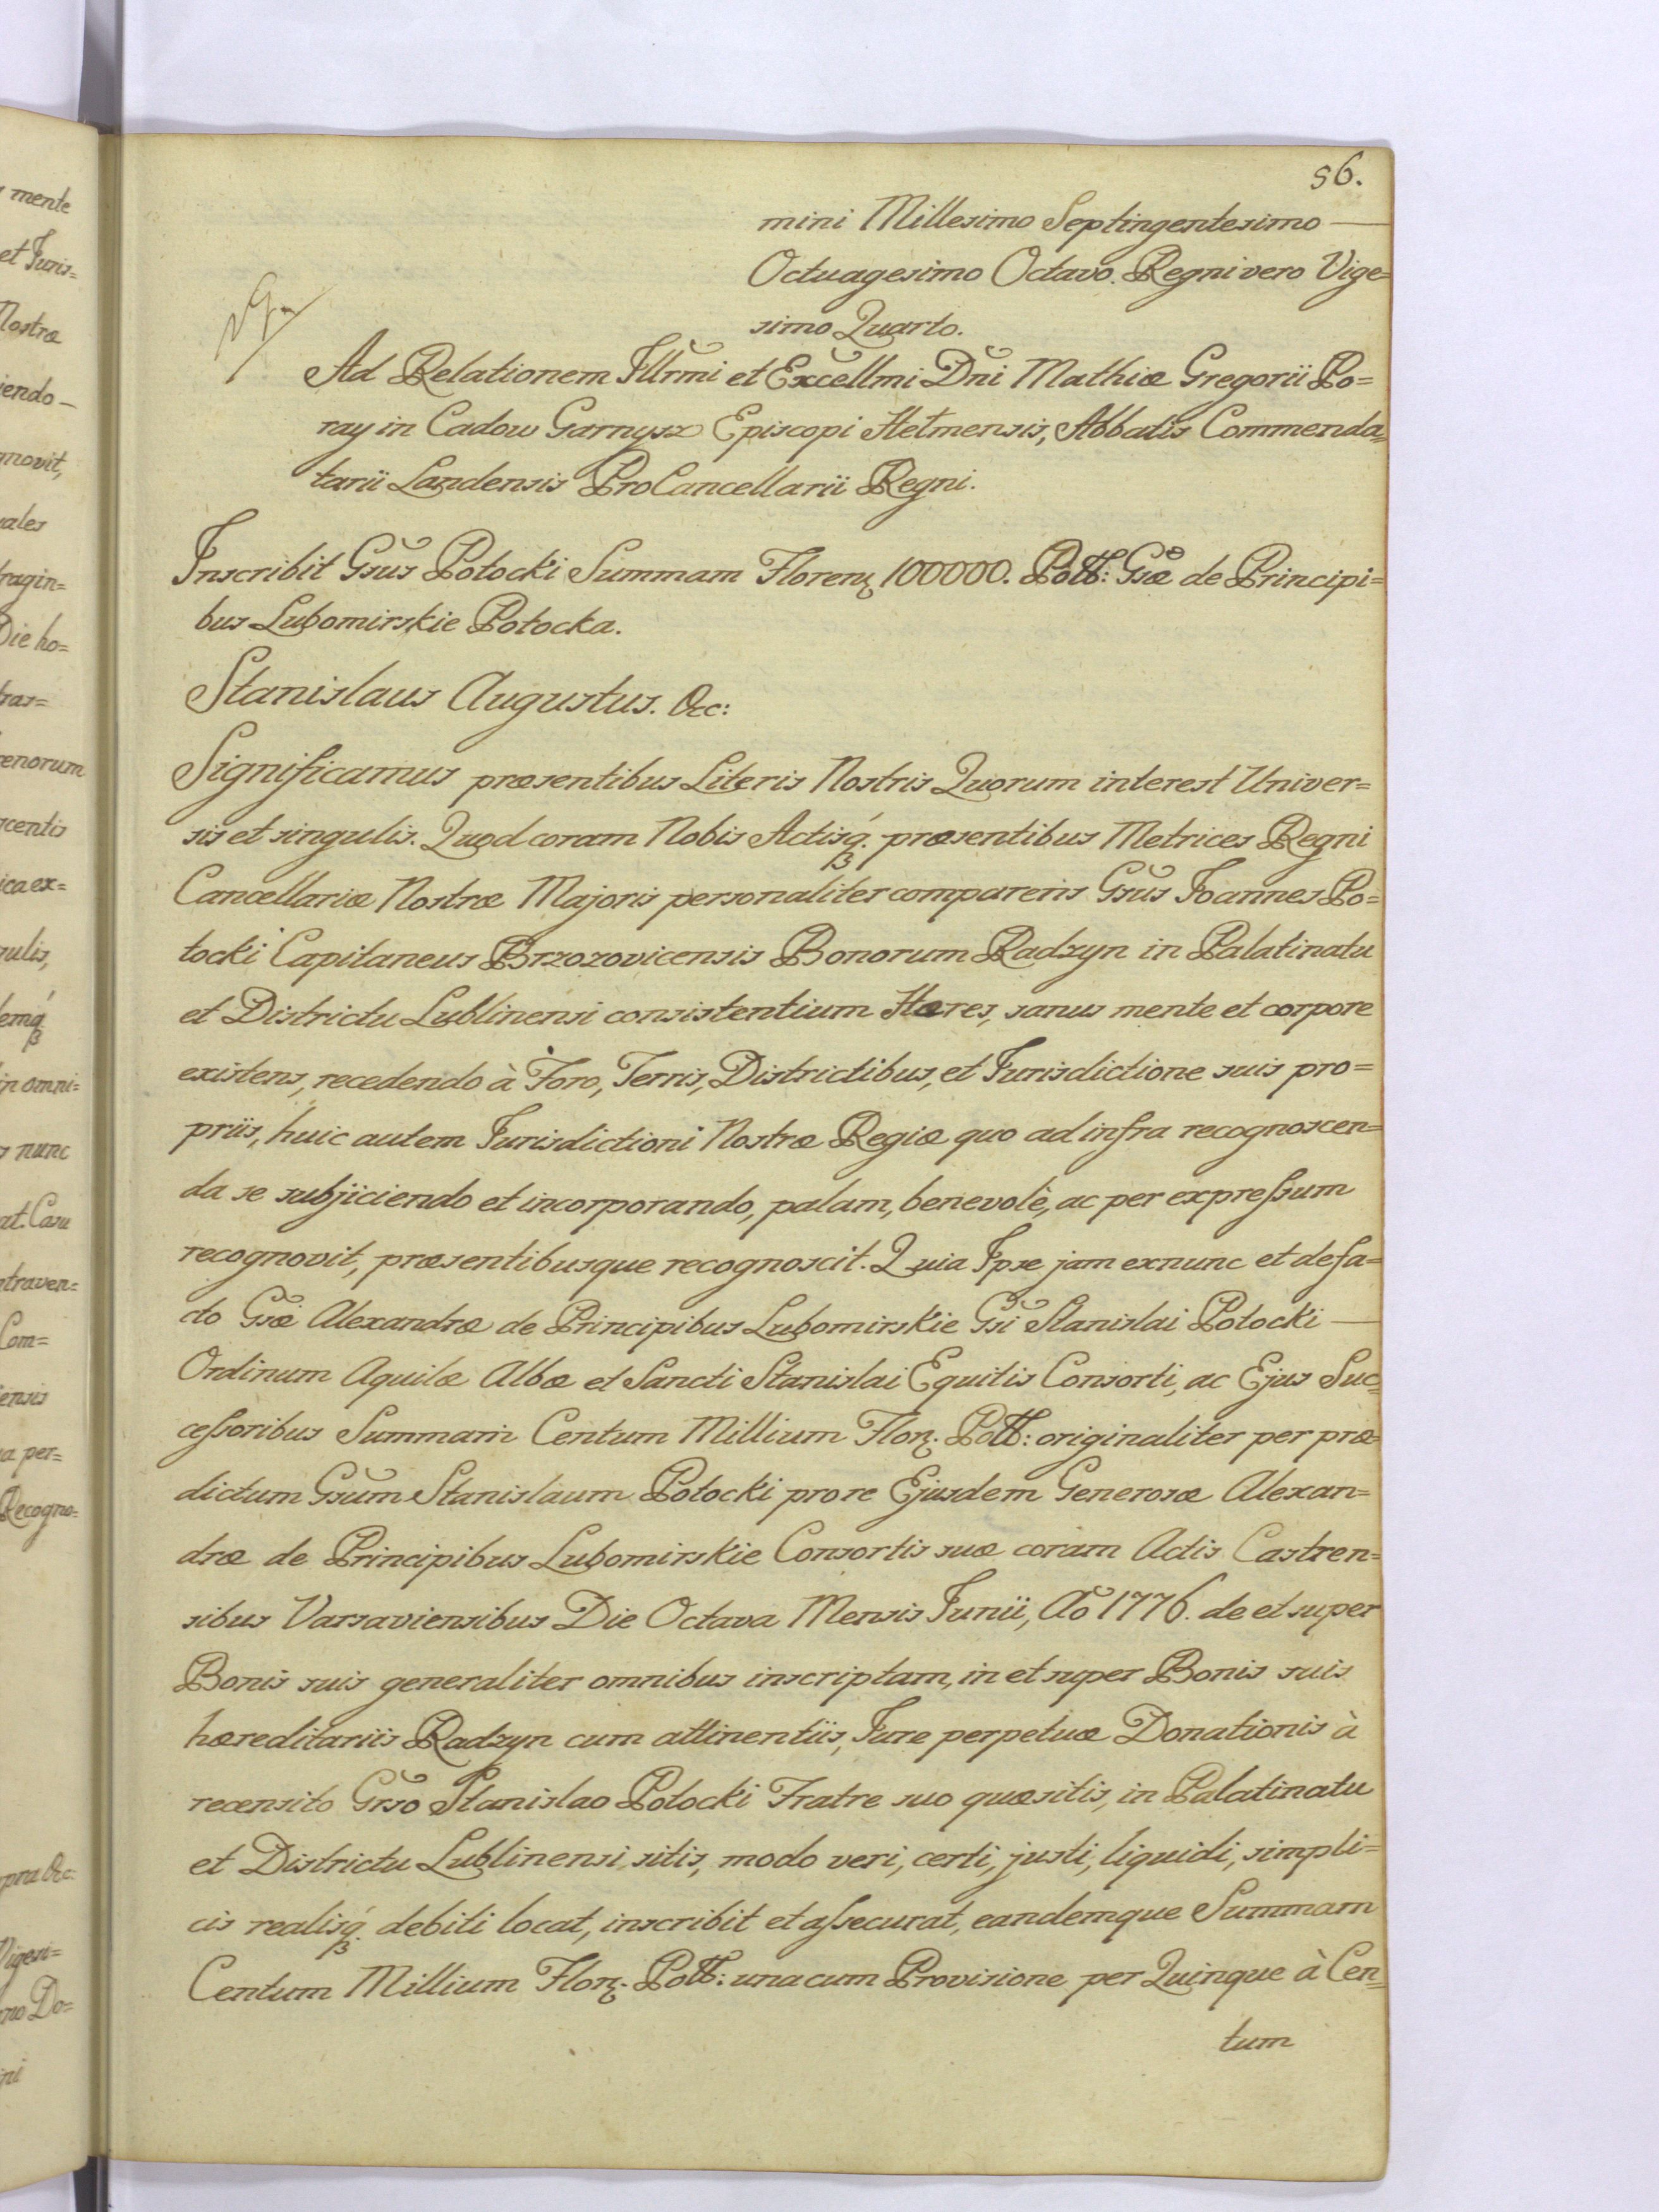 56.
mini Millesimo Septingentesimo —
Octuagesimo Octavo. Regni vero Vige=
simo Quarto.
Ad Relationem Illr̃mi et Excell̃mi Dñi Mathiæ Gregorii Po=
ray in Cadow Garnysz Episcopi Helmensis, Abbatis Commenda=
tarii Landensis ProCancellarii Regni.
Inscribit Gsus Potocki Summam Floren 100000. Poll: Gsæ de Principi=
bus Lubomirskie Potocka.
Stanislaus Augustus. &c:
Significamus præsentibus Literis Nostris Quorum interest Univer=
sis et singulis. Quod coram Nobis Actisq́. præsentibus Metrices Regni
Cancellariæ Nostræ Majoris personaliter comparens Gsus Joannes Po=
tocki Capitaneus Brzozovicensis Bonorum Radzyn in Palatinatu
et Districtu Lublinensi consistentium Hæres, sanus mente et corpore
existens, recedendo à Foro, Terris, Districtibus, et Jurisdictione suis pro=
priis, huic autem Jurisdictioni Nostræ Regiæ quo ad infra recognoscen=
da se subjiciendo et incorporando, palam, benevolè, ac per expreſsum
recognovit, præsentibusque recognoscit. Quia Ipse jam exnunc et defa=
cto Gsæ Alexandræ de Principibus Lubomirskie Gsi Stanislai Potocki —
Ordinum Aquilæ Albæ et Sancti Stanislai Equitis Consorti, ac Ejus Suc=
ceſsoribus Summam Centum Millium Flor. Poll: originaliter per præ=
dictum Gsum Stanislaum Potocki pro re Ejusdem Generosæ Alexan=
dræ de Principibus Lubomirskie Consortis suæ coram Actis Castren=
sibus Varsaviensibus Die Octava Mensis Junii, Aõ 1776. de et super
Bonis suis generaliter omnibus inscriptam, in et super Bonis suis
hæreditariis Radzyn cum attinentiis, Jure perpetuæ Donationis à
recensito Grso Stanislao Potocki Fratre suo quæsitis, in Palatinatu
et Districtu Lublinensi sitis, modo veri, certi, justi, liquidi, simpli=
cis realisq́. debiti locat, inscribit et aſsecurat, eandemque Summam
Centum Millium Flor. Poll: unacum Provisione per Quinque à Cen=
tum